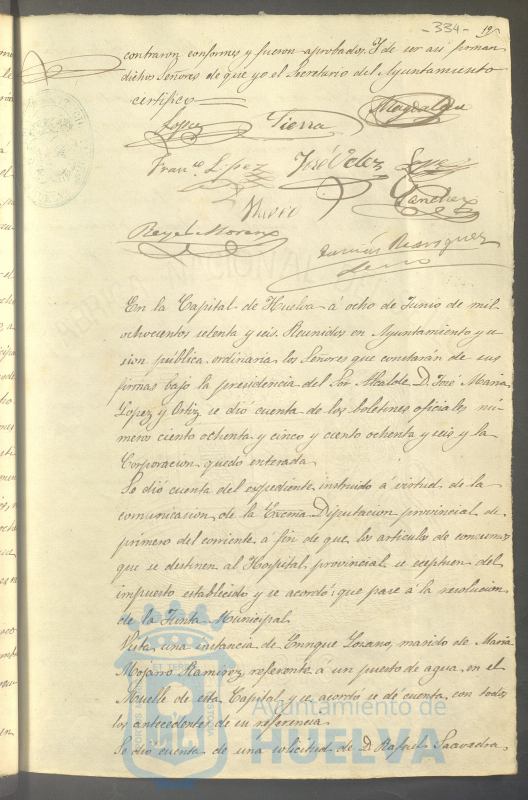 -334-
contraron conformes y fueron aprobados. Y de ser asi firman
dichos Señores de que yo el Secretario del Ayuntamiento
certifico
Lopez Tierra
Fran.co Lopez José
Sanchez
Rafael Moreno
En la Capital de Huelva á ocho de Junio de mil
ochocientos setenta y seis. Reunidos en Ayuntamiento y se
sion publica ordinaria los Señores que constarán de sus
firmas bajo la presidencia del Sor Alcalde D. José Maria
Lopez y Ortiz se dió cuenta de los boletines oficiales nú
meros ciento ochenta y cinco y ciento ochenta y seis y la
Corporacion quedó enterada
Se dió cuenta del expediente instruido á virtud de la
comunicacion de la Excma Diputacion provincial de
primero del corriente á fin de que los articulos de consumos
que se destinen al Hospital provincial se eceptuen del
impuesto establecido y se acordó: que pase á la resolucion
de la Junta Municipal
Vista una instancia de Enrique Lozano, marido de Maria
Mojarro Ramirez, referente á un puesto de agua en el
Muelle de esta Capital y se acordó se dé cuenta con todos
los antecedentes de su referencia
Se dió cuenta de una solicitud de D. Rafael Saavedra
Ayuntamiento de
HUELVA